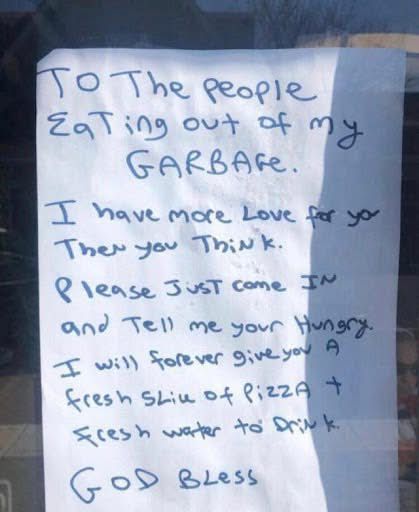 To The people
EaTing out of my
GARBAGe.
I have more Love for you
Then you Think.
Please JUST come IN
and Tell me your Hungry.
I will forever give you A
fresh Slice of PizzA +
fresh water to Drink.
GOD BLess